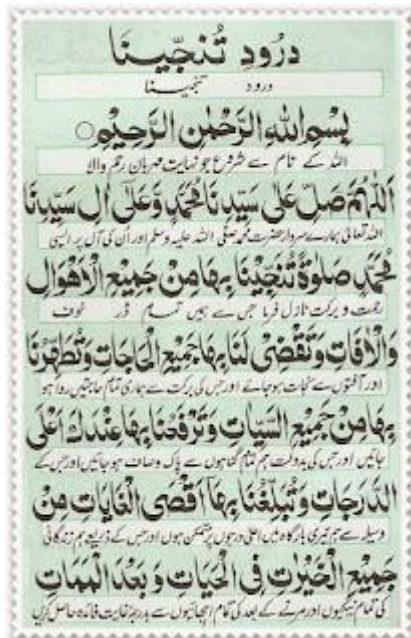 درُودِ تُنَجِّينَا
درود تنجینا
بِسْمِ اللهِ الرَّحْمٰنِ الرَّحِيْمِ
اللہ کے نام سے شروع جو نہایت مہربان رحم والا
اَللّٰهُمَّ صَلِّ عَلٰى سَيِّدِنَا مُحَمَّدٍ وَّعَلٰٓى اٰلِ سَيِّدِنَا
اللہ تعالیٰ ہمارے سردار حضرت محمد صلی اللہ علیہ وسلم اور اُن کی آل پر ایسی
مُحَمَّدٍ صَلٰوةً تُنَجِّيْنَا بِهَا مِنْ جَمِيْعِ الْاَهْوَالِ
رحمت و برکت نازل فرما جس سے ہمیں تمام ڈر خوف
وَالْاٰفَاتِ وَتَقْضِىْ لَنَا بِهَا جَمِيْعَ الْحَاجَاتِ وَتُطَهِّرُنَا
اور آفتوں سے نجات ہو جائے اور جس کی برکت سے ہماری تمام حاجتیں روا ہو
بِهَا مِنْ جَمِيْعِ السَّيِّاٰتِ وَتَرْفَعُنَا بِهَا عِنْدَكَ اَعْلَى
جائیں اور جس کی بدولت ہم تمام گناہوں سے پاک و صاف ہو جائیں اور جس کے
الدَّرَجَاتِ وَتُبَلِّغُنَا بِهَا اَقْصَى الْغَايَاتِ مِنْ
وسیلے سے ہم تیری بارگاہ میں اعلیٰ درجوں پر متمکن ہوں اور جس کے ذریعے ہم زندگانی
جَمِيْعِ الْخَيْرٰتِ فِى الْحَيَاتِ وَبَعْدَ الْمَمَاتِ
کی تمام نیکیوں اور مرنے کے بعد کی تمام اچھائیوں سے بدرجہ غایت فائدہ حاصل کریں